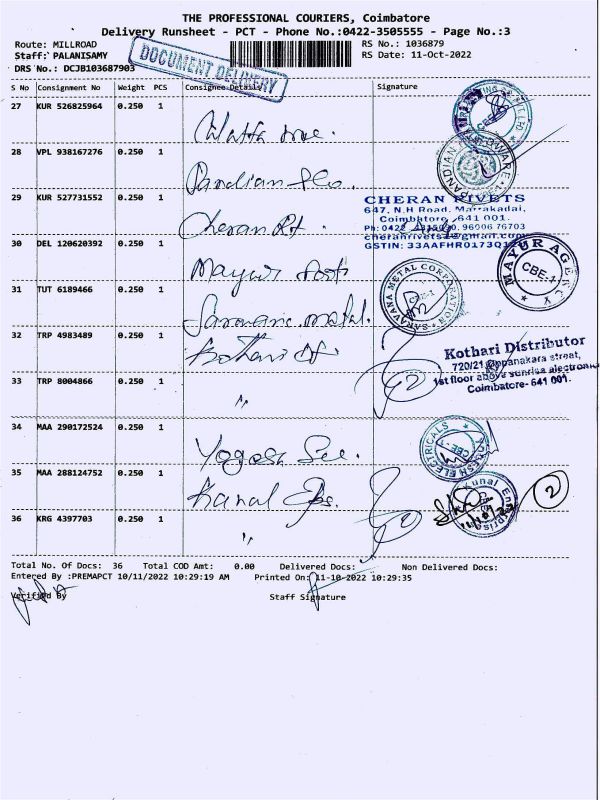 THE PROFESSIONAL COURIERS, Coimbatore
Delivery Runsheet - PCT - Phone No.:0422-3505555 - Page No.:3
Route: MILLROAD
RS No.: 1036879
Staff: PALANISAMY
RS Date: 11-Oct-2022
DRS No.: DCJB103687903
DOCUMENT DELIVERY
S No Consignment No Weight PCS Consignee Details Signature
27 KUR 526825964 0.250 1
28 VPL 938167276 0.250 1 Pandian
PANDIAN
29 KUR 527731552 0.250 1 Cheran
CHERAN RIVETS
647, N.H Road, Marakadai,
Coimbatore 641 001.
96006 76703
cheranrivets@gmail.com
GSTIN: 33AAFHR0173Q
30 DEL 120620392 0.250 1 Mayur
MAYUR AGENCY
CBE-1
31 TUT 6189466 0.250 1 Saravana metal.
SARAVANA METAL CORPORATION
CBE-1
32 TRP 4983489 0.250 1 Kothari
Kothari Distributor
720/21 street,
1st floor above sunrise electronic
Coimbatore- 641 001.
33 TRP 8004866 0.250 1 "
2
34 MAA 290172524 0.250 1 Yogesh
YOGESH ELECTRICALS
CBE-1
35 MAA 288124752 0.250 1 Kunal
Kunal Enterprises
2
36 KRG 4397703 0.250 1 "
2
Total No. Of Docs: 36 Total COD Amt: 0.00 Delivered Docs: Non Delivered Docs:
Entered By :PREMAPCT 10/11/2022 10:29:19 AM Printed On: 11-10-2022 10:29:35
Verified By Staff Signature